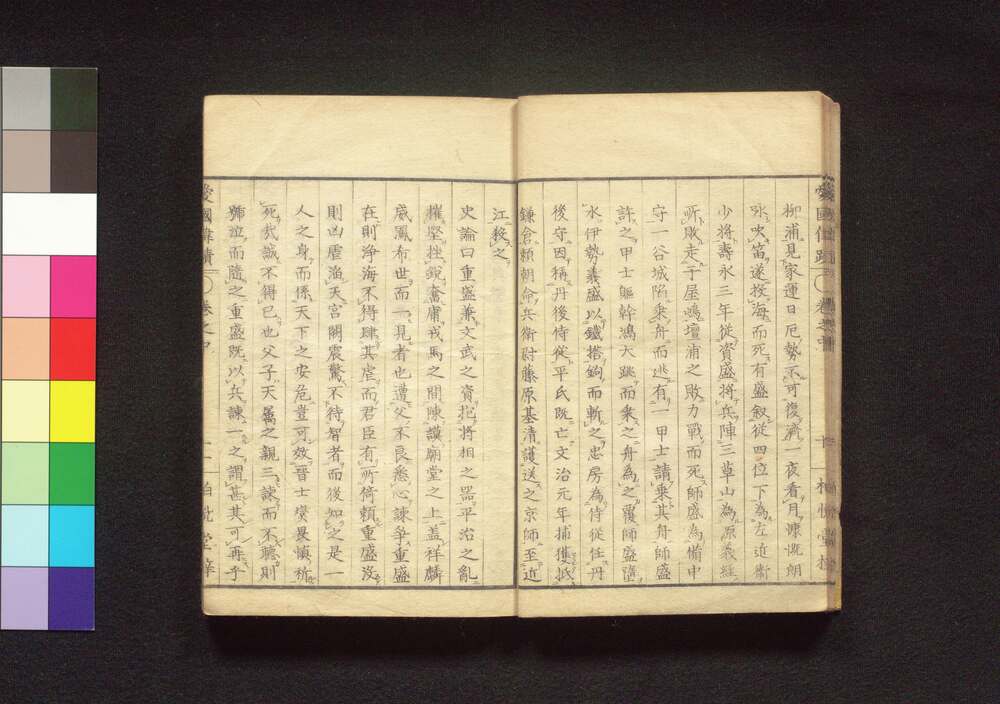 柳浦見家運日厄勢不可復濟一夜看月慷慨朗
咏吹笛遂投海而死有盛叙從四位下為左近衞
少將壽永三年從資盛將兵陣三草山為源義經
所敗走于屋嶋壇浦之敗力戰而死師盛為備中
守一谷城陷乘舟而逃有一甲士請乘其舟師盛
許之甲士軀幹鴻大跳而乘之舟為之覆師盛隨
水伊勢義盛以鐵搭鉤而斬之忠房為侍從任丹
後守因稱丹後侍從平氏既亡文治元年捕獲抵
鎌倉賴朝命兵衞尉藤原基清護送之京師至近
江殺之
史論曰重盛兼文武之資抱將相之器平治之亂
摧堅挫銳奮庸戎馬之間陳謨廟堂之上蓋祥麟
威鳳希世而一見者也遭父不良悉心諫爭重盛
在則淨海不得肆其虐而君臣有所倚賴重盛沒
則凶虐漁天宮闕震驚不待智者而後知之是一
人之身而係天下之安危豈可效晉士燮畏愼祈
死哉誠不得已也父子天屬之親三諫而不聽則
號泣而隨之重盛既以兵諫一之謂甚其可再乎
愛國偉蹟 卷之中